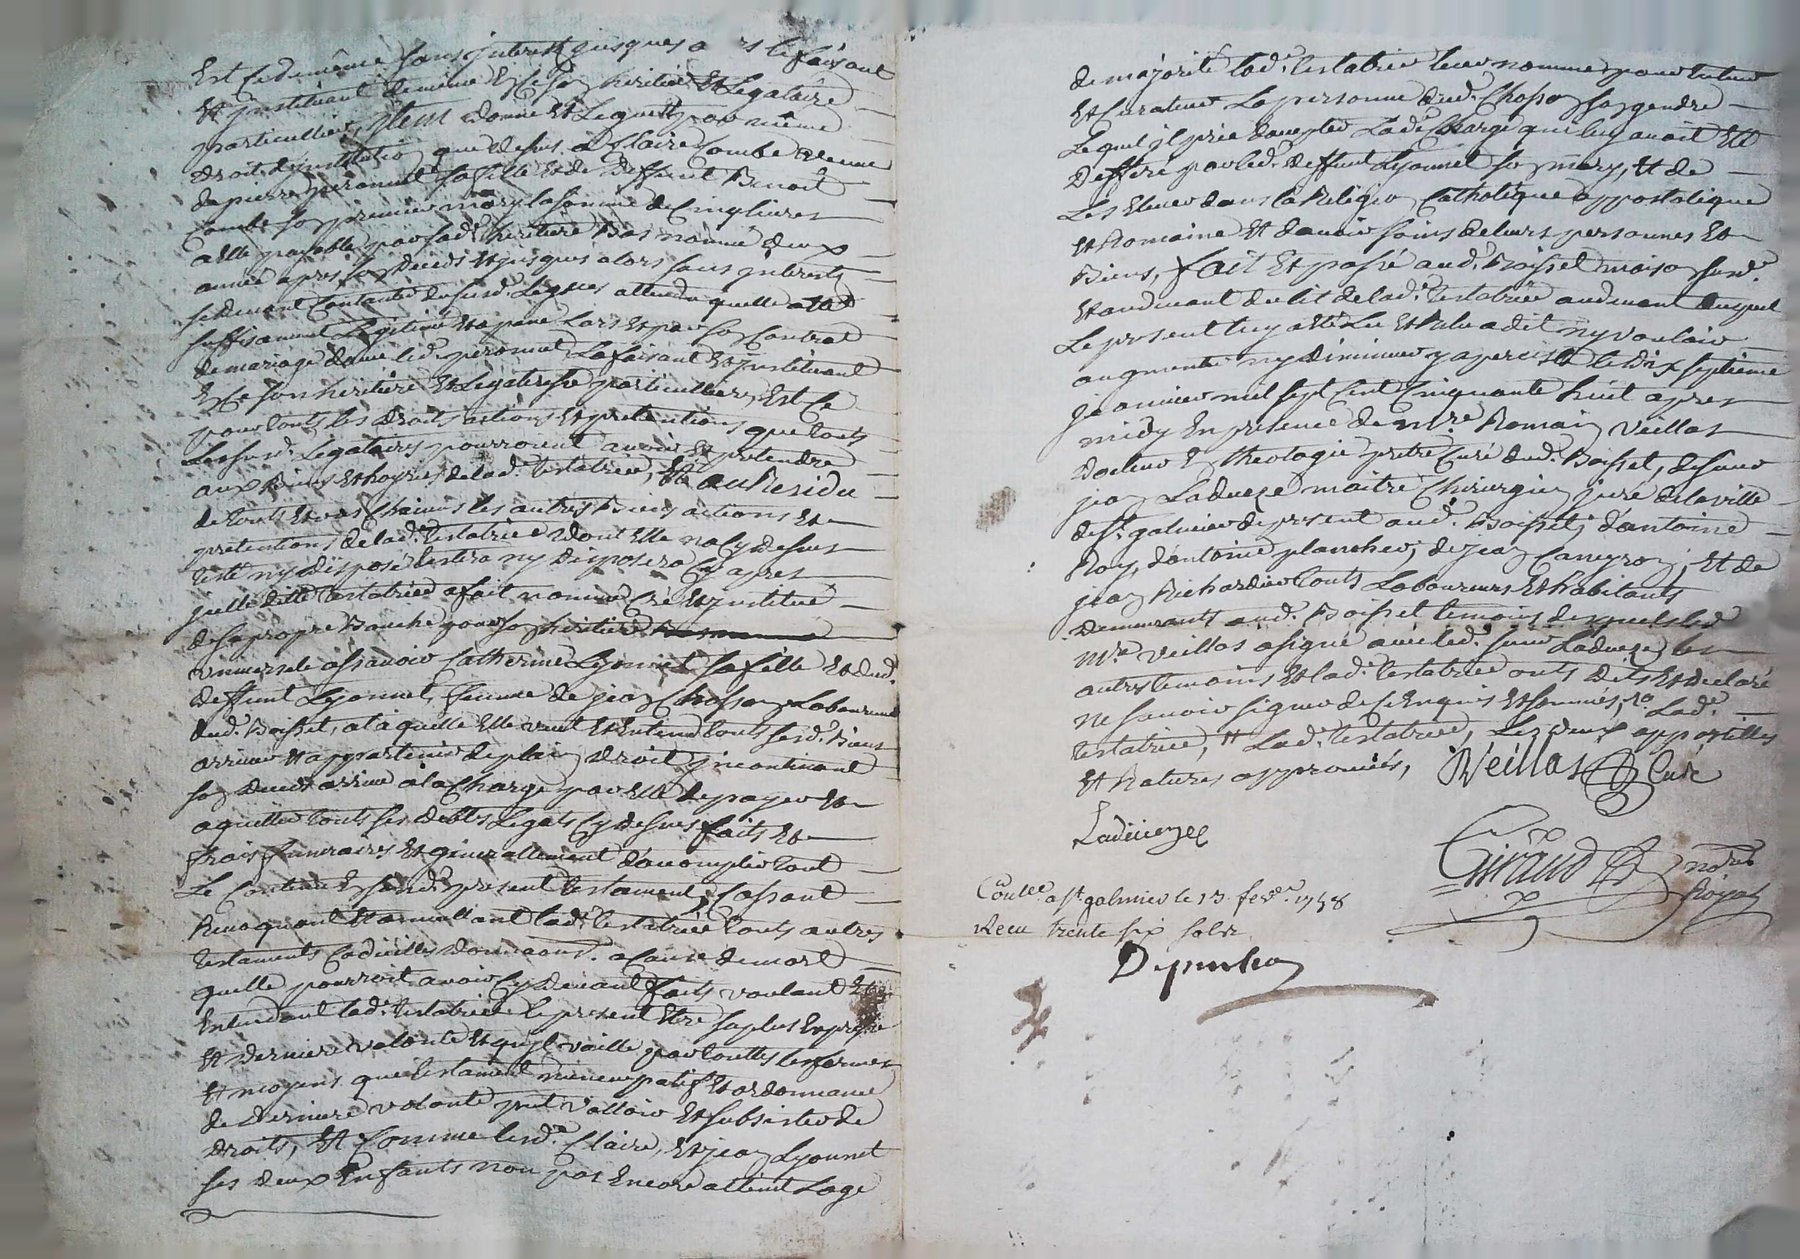 Est ce de même sans interest jusques a rs le faisant
Et instituant de même En ce son héritier Et Legataire
particullier, Item donne Et Legue par même
droit dinstitution que dessus a Claire Combe vienne
de pierre peronnet sa fille Et de deffunt Benoit
Combe son premier mary la somme de Cinq livres
a elle payable par sad. heritiere Bas nommée deux
année apres son deceds Et jusques alors sans interests
se devant Contanter du susd. Legues attendu quelle a Eté
suffisamment Legitimé Et apané Lors Et par son Contrat
de mariage davec led. peronnet, La faisant Et instituant
En ce son heritiere Et Legateresse particulliere, Est Ce
pour touts Les droits actions Et pretentions que touts
Les susd. Legataires pourroient avoir Et pretendre
aux Biens Et hoyries de lad. testatrice, Et au Residu
de touts Et uns Chacuns les autres Biens actions Et
pretentions de lad. testatrice dont Elle na Cy dessus
testé ny disposé testera ny disposera Cy apres
quelle ditte testatrice a fait nommé Créé Et institué
de sa propre Bouche pour son heritiere
universelle assavoir Catherine Lyonnet sa fille Et dud.
deffunt Lyonnet, femme de jean Chosson Laboureur
dud. Boisset, a laquelle Elle veut Et Entend touts sesd. Biens
arriver Et appartenir de plain droit incontinant
son deceds arrivé a la Charge par Elle de payer Et
aquitter touts ses debtes Legats Cy dessus faits Et
frais funeraires Et generallement daccomplir tout
Le Contenu En sond. present testament, Cassant
Revoquant Et annullant lad. testatrice touts autres
testaments Codicilles donnaons. a Cause de mort
quelle pourroit avoir Cy devant faits voulant Et
Entendant lad. testatrice Le present Etre sa plus Expresse
Et derniere volonté Et quil vaille par touttes les formes
Et moyens que testament nuncupatif Et ordonnance
de derniere volonté peut Valloir Et subsister de
droits, Et Comme lesd. Claire, Et jean Lyonnet
ses deux Enfants nont pas Encore atteint Lage
de majorité lad. testatrice leur nomme pour tuteur
Et Curateur La personne dud. Chosson son gendre
Lequel il prie daccepter Lade. Charge qui luy avoit Eté
Defferé par led. deffunt Lyonnet son mary, Et de
Les Elever dans la Religion Catholique appostolique
Et Romaine Et davoir soins de leurs personnes Et
Biens, fait Et passé aud. Boisset maison susd.
Et audevant du lit de lad. testatrice audevant duquel
Le present luy a Eté Lu Et Relu a dit ny vouloir
augmenter ny diminuer y a persisté Le dix septieme
janvier mil sept Cent Cinquante huit apres
midy En presence de mtre Romain Veillas
docteur En theologie pretre Curé dud. Boisset, de sieur
jean Ladueze maitre Chirurgien juré de la ville
de st galmier de present aud. Boisset, dantoine
Roy, dantoine plancher, de jean Caneyron, Et de
jean Richardier touts Laboureurs Et habitants
demeurants aud. Boisset temoins desquels led
mre Veillas a signé avec led. sieur Ladueze, les
autres temoins Et lad. testatrice onts dits Et declaré
ne sçavoir signer de ce Enquis Et sommés, Lad.
testatrice, Lad. testatrice, Les deux appostilles
Et Ratures approuvés, Veillas Curé
Ladueze
Giraud nore Royal
Conlle. a st galmier le 13 fevr. 1758
Recu trente six sols